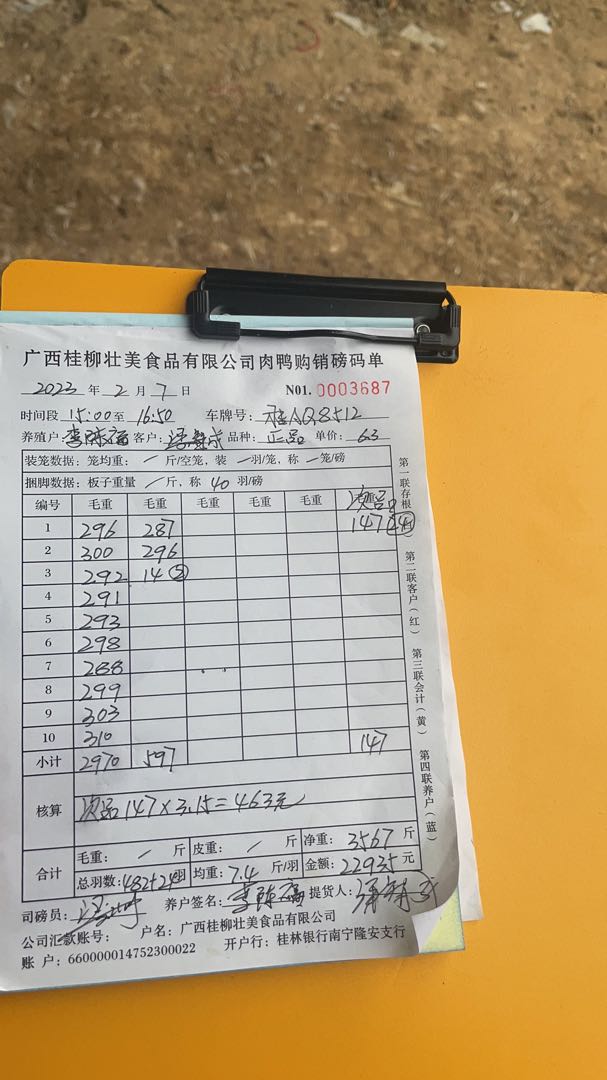 广西桂柳壮美食品有限公司肉鸭购销磅码单
2023 年 2 月 7 日 N01. 0003687
时间段 15:00 至 16:50 车牌号: 桂AQ8512
养殖户: 李陈福 客户: 品种: 正品 单价: 6.3
装笼数据: 笼均重: / 斤/空笼, 装 / 羽/笼, 称 / 笼/磅
捆脚数据: 板子重量 / 斤, 称 40 羽/磅
编号 毛重 毛重 毛重 毛重 毛重 次品
1 296 287 147
2 300 296
3 292 14 ②
4 291
5 293
6 298
7 288
8 299
9 303
10 310
小计 2970 597 147
核算 次品 147 × 3.15 = 463元
合计 毛重: / 斤 皮重: / 斤 净重: 3567 斤
总羽数: 482+24羽 均重: 7.4 斤/羽 金额: 22935 元
司磅员: 养户签名: 李陈福 提货人:
公司汇款账号: 户名: 广西桂柳壮美食品有限公司
账 户: 660000014752300022 开户行: 桂林银行南宁隆安支行
第一联存根
第二联客户(红)
第三联会计(黄)
第四联养户(蓝)